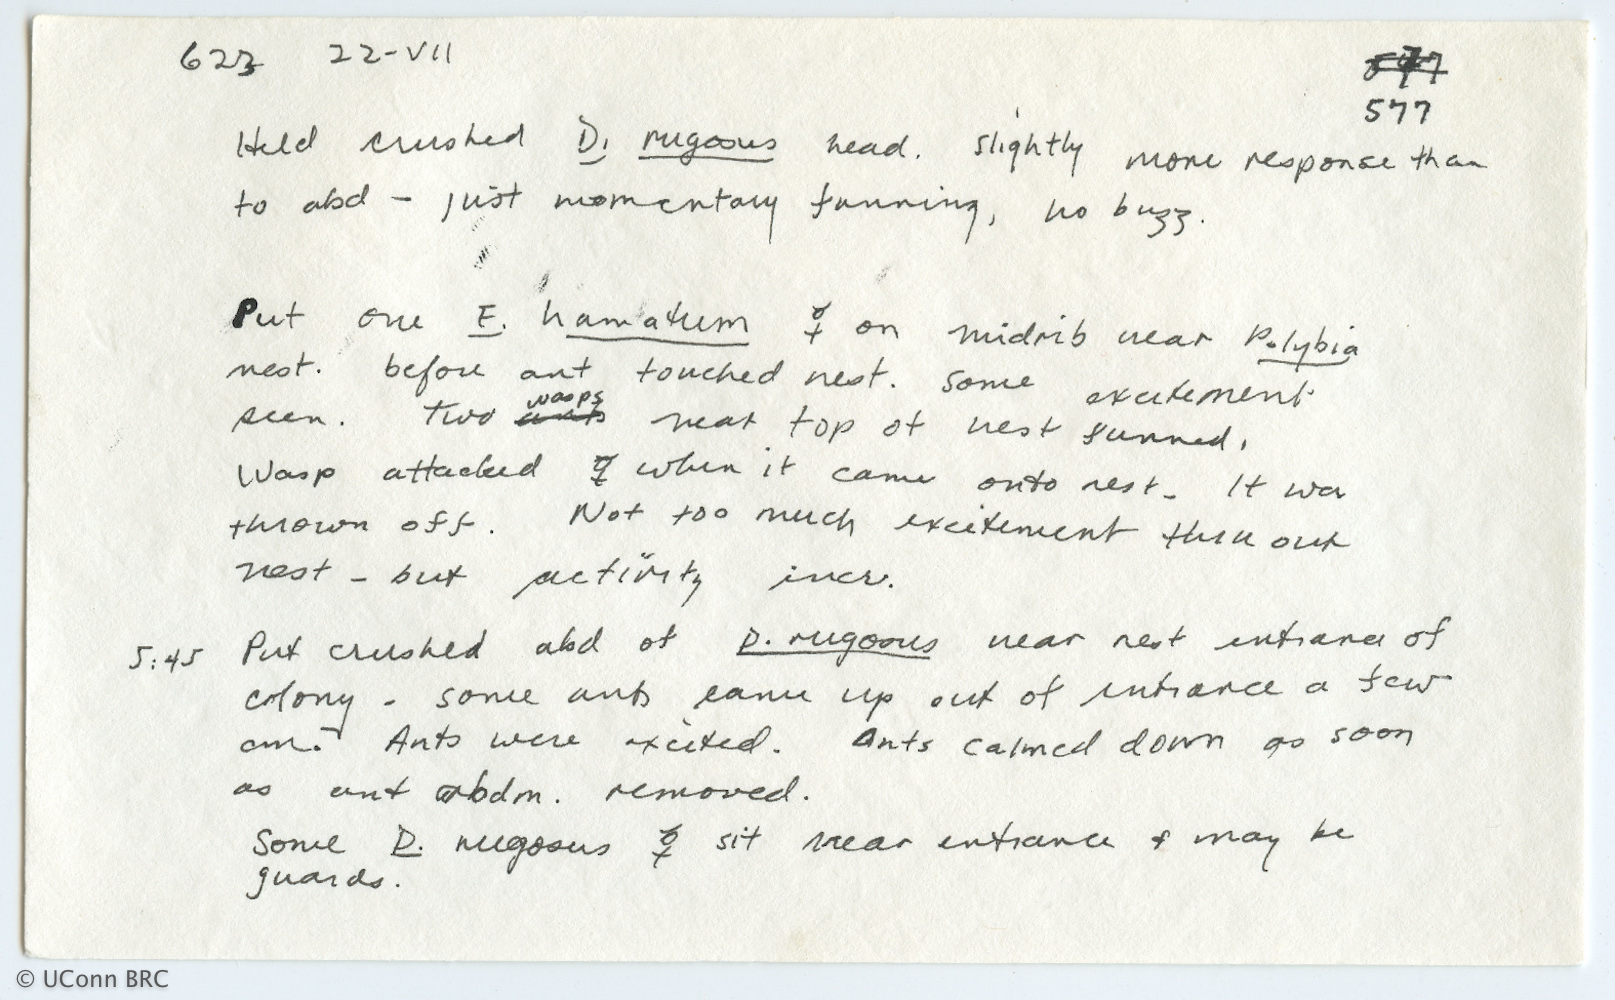 623 22-VII
577
577
Held crushed D. rugosus head. slightly more response than
to abd – just momentary fanning, no buzz.
Put one E. hamatum ☿ on midrib near Polybia
nest. before ant touched nest. Some excitement
seen. Two ants wasps near top of nest fanned.
Wasp attacked ☿ when it came onto nest. It was
thrown off. Not too much excitement thru out
nest – but activity incr.
5:45 Put crushed abd of D. rugosus near nest entrance of
colony - some ants came up out of entrance a few
cm. Ants were excited. Ants calmed down as soon
as ant abdm. removed.
Some D. rugosus ☿ sit near entrance & may be
guards.
© UConn BRC